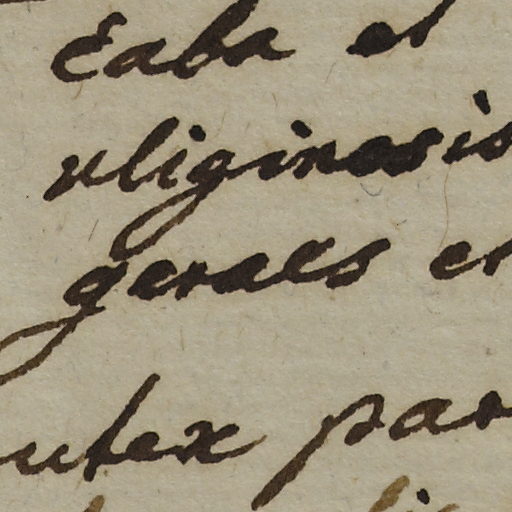 Eaba et
uliginosis
geraes et
utex par